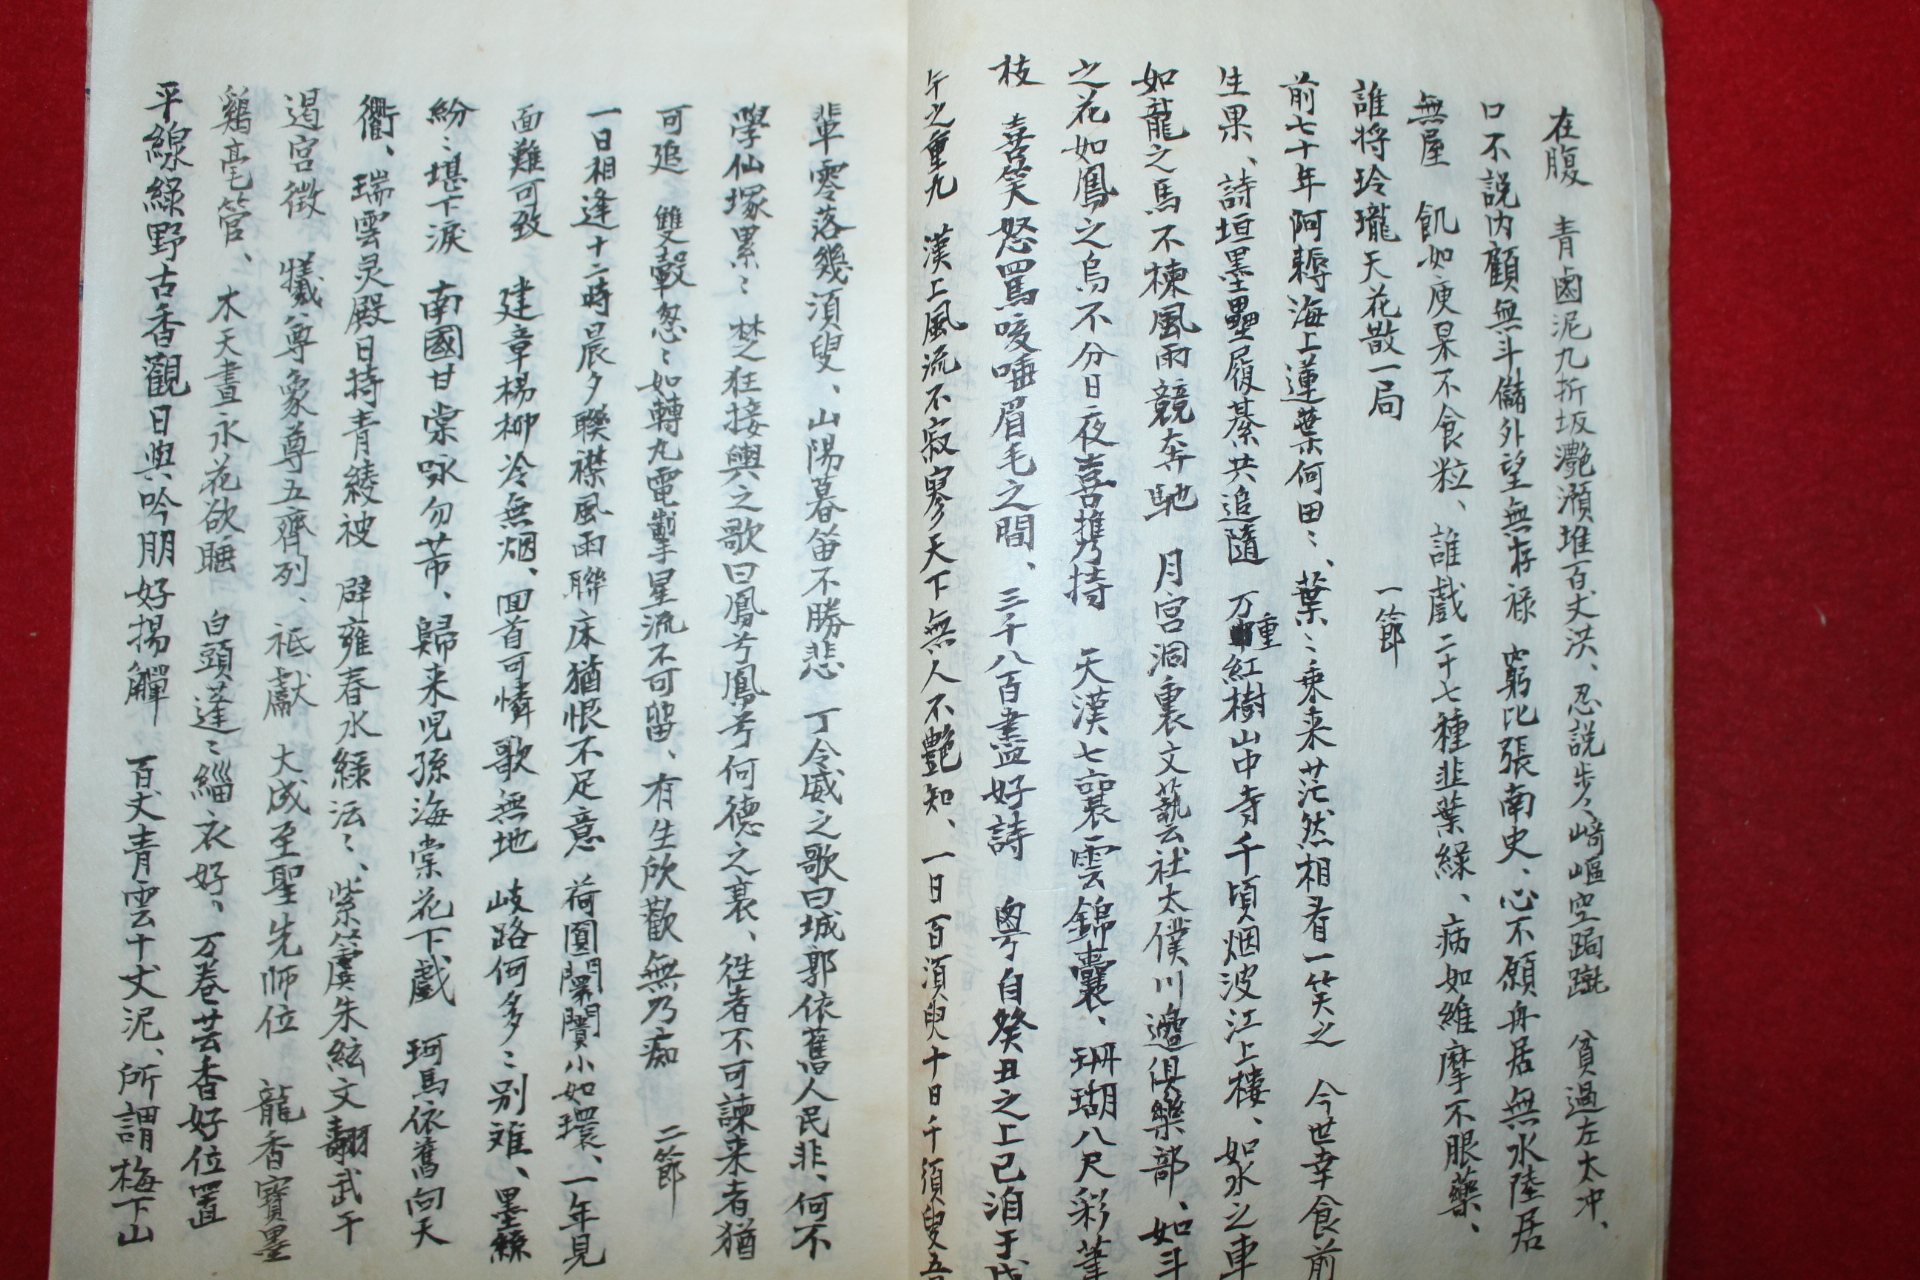 在腹　青鹵泥九折坂灔澦堆百丈洪、忍說步々﨑嶇空跼蹴　貧過左太冲、
口不說內顧無斗儲外望無存祿　窮比張南史、心不願舟居無水陸居
無屋　飢如庾杲不食粒、誰戱二十七種韭葉綠、病如維摩不眼藥、
誰將玲瓏天花散一局　一節
前七十年阿耨海上蓮葉何田〻、葉〻乘来茫然相看一笑之　今世幸食前
生果、詩垣墨壘履綦共追隨　万種紅樹山中寺千頃烟波江上樓、如水之車
如龍之馬不楝風雨競奔馳　月宮洞裏文藝社太僕川邊俱樂部、如斗
之花如鳳之鳥不分日夜喜携持　天漢七襄雲錦囊、珊瑚八尺彩筆
枝　喜笑怒罵咳唾眉毛之間、三千八百盡好詩　粤自癸丑之上巳洎于戊
午之重九　漢上風流不寂寥天下無人不艶知、一日百須臾十日千須臾五
輩零落幾須臾、山陽暮笛不勝悲　丁令威之歌曰城郭依舊人民非、何不
學仙塚累〻　楚狂接輿之歌曰鳳兮鳳兮何德之衰、徃者不可諫来者猶
可追　雙轂怱〻如轉丸電掣星流不可留、有生欣歡無乃痴　二節
一日相逢十二時晨夕聯襟風雨聯床猶恨不足意　荷園閙闤闠小如環、一年見
面難可致　建章楊柳冷無烟、回首可憐歌無地　岐路何多〻別难、墨綠
紛〻堪下淚　南國甘棠咏勿芾、歸来児孫海棠花下戱　珂馬依舊向天
衢、瑞雲灵殿日持青綾被　辟雍春水綠沄〻、紫簹虡朱絃文翿武干
過宮徵　犧尊象尊五齊列、祗獻大成至聖先師位　龍香寶墨
鷄毫管、木天晝永花欲睡　白頭蓬〻緇衣好、万卷芸香好位置
平線綠野古香觀日與吟朋好揚觶　百丈青雲十丈泥、所謂梅下山